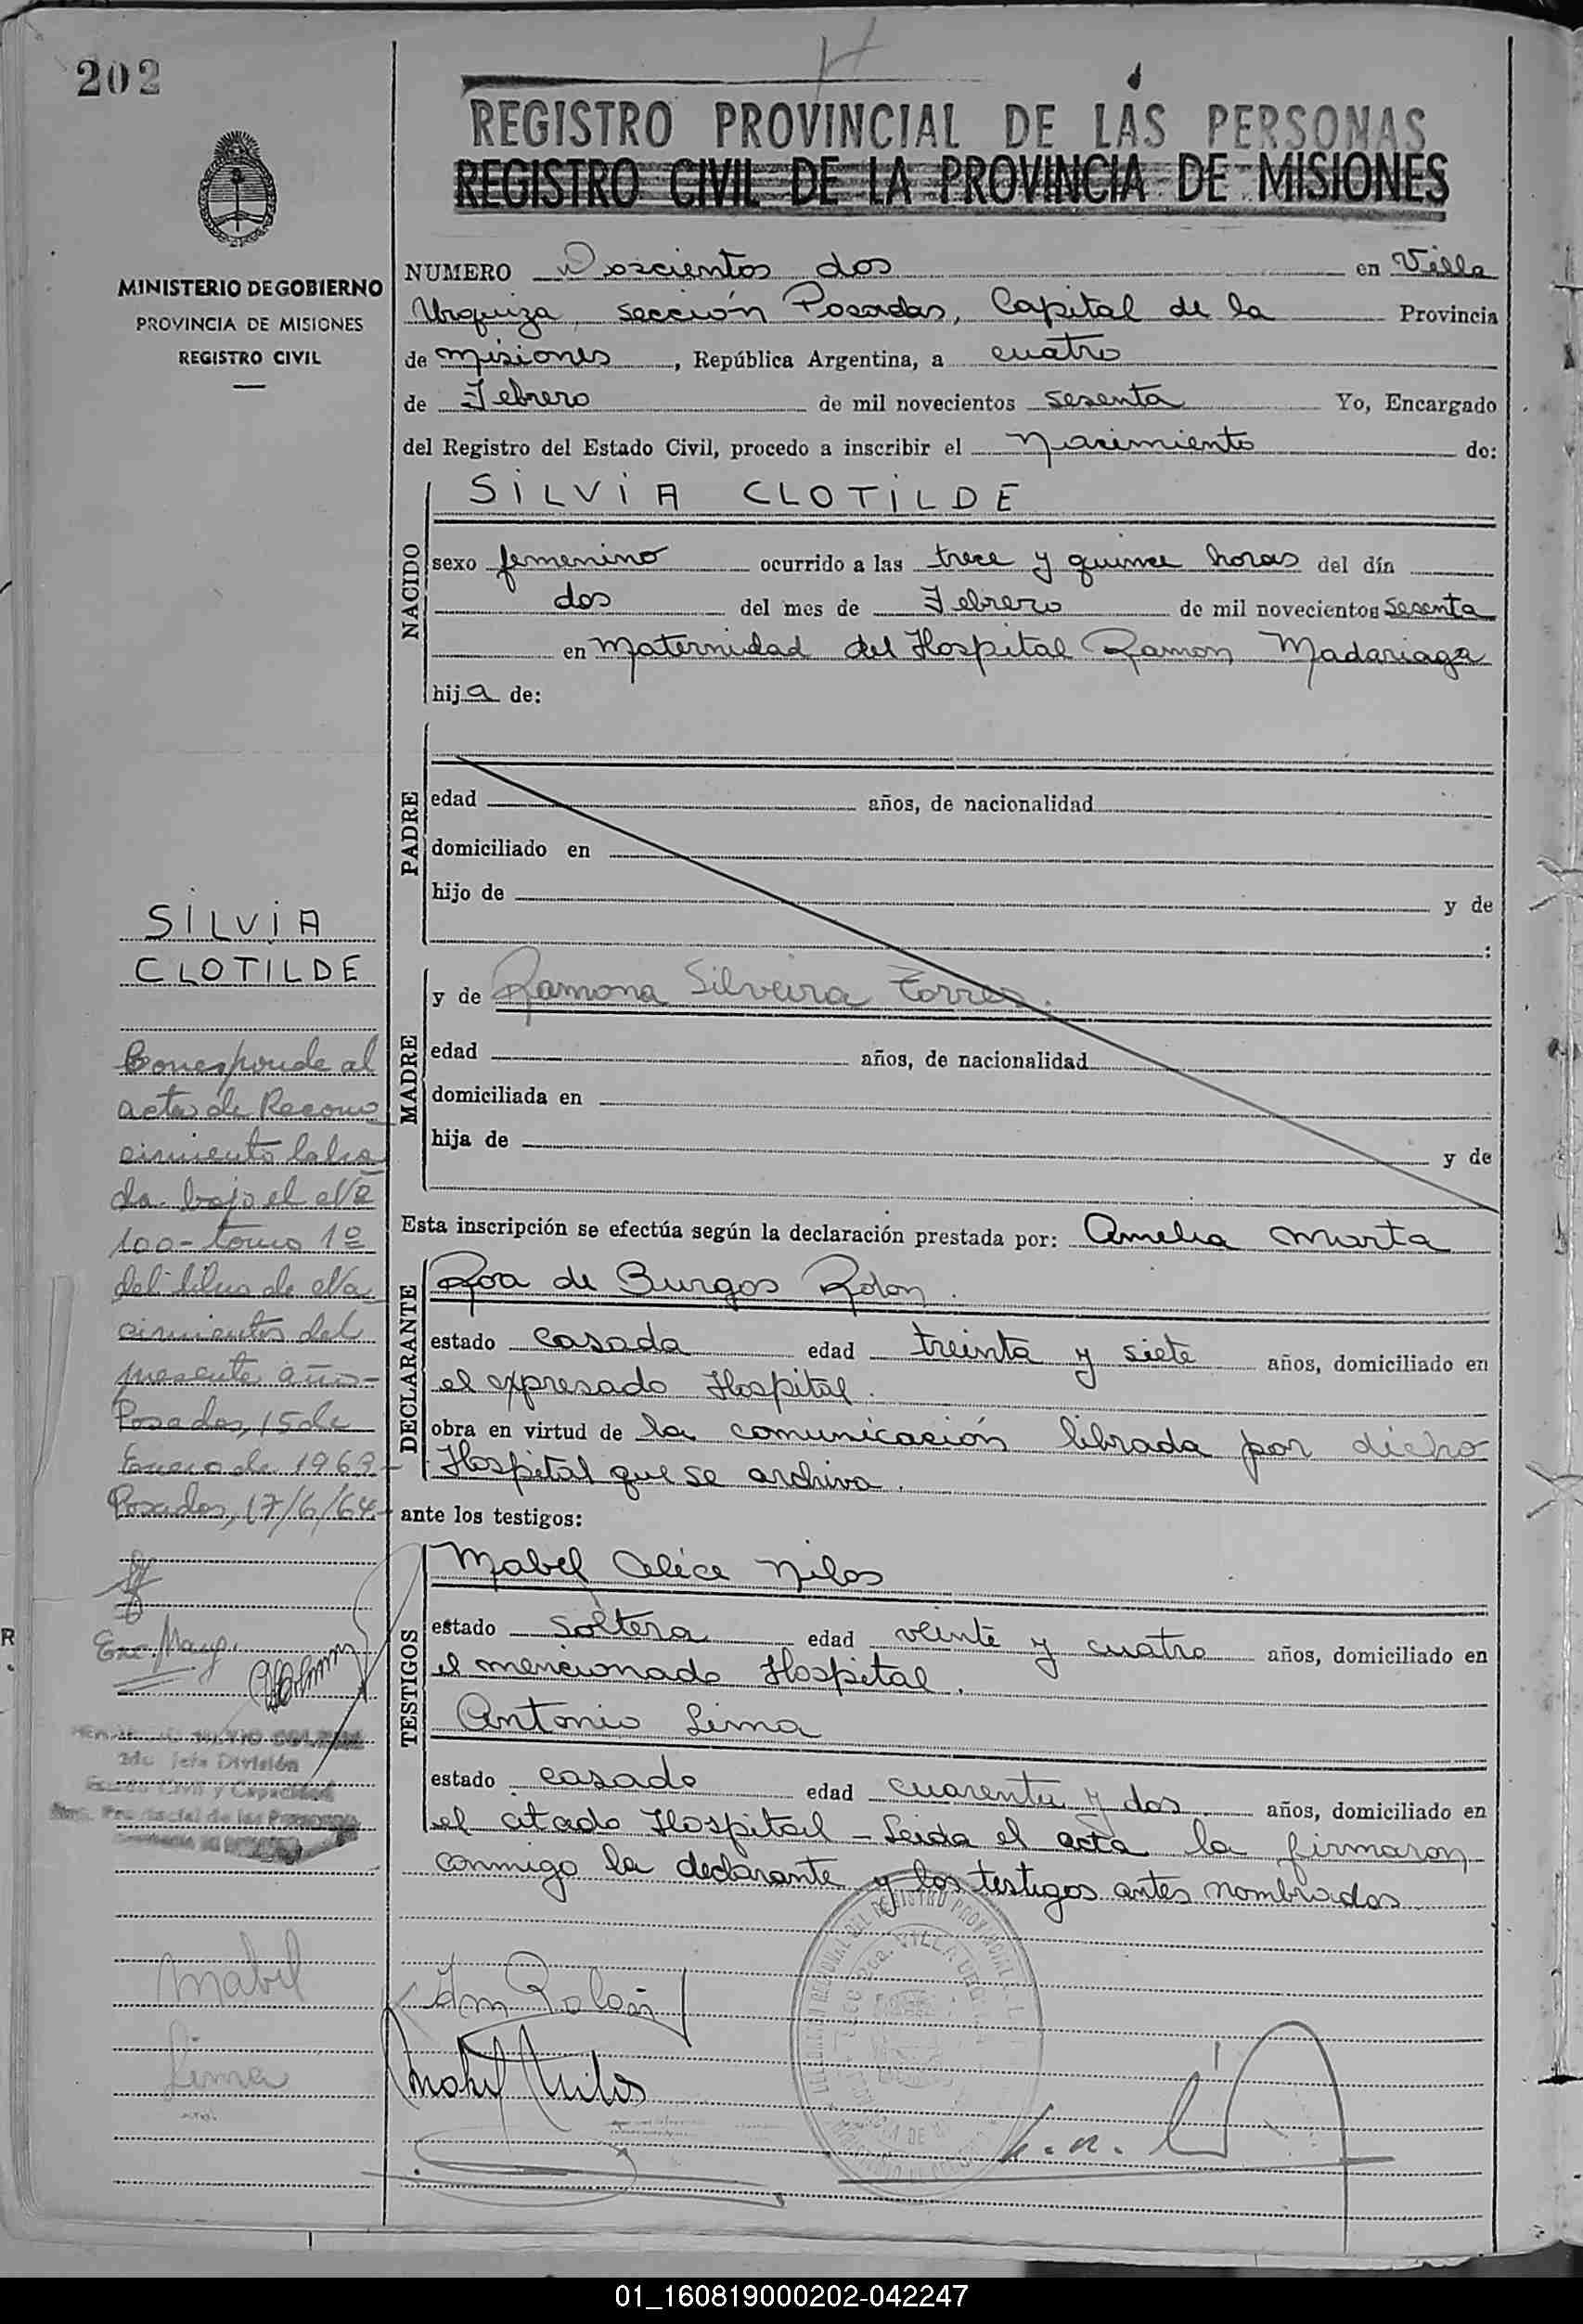 202
REGISTRO PROVINCIAL DE LAS PERSONAS
REGISTRO CIVIL DE LA PROVINCIA DE MISIONES
MINISTERIO DE GOBIERNO
PROVINCIA DE MISIONES
REGISTRO CIVIL
NUMERO Doscientos dos en Villa
Urquiza, sección Posadas, Capital de la Provincia
de Misiones, República Argentina, a cuatro
de Febrero de mil novecientos sesenta Yo, Encargado
del Registro del Estado Civil, procedo a inscribir el Nacimiento de:
NACIDO
SILVIA CLOTILDE
sexo femenino ocurrido a las trece y quince horas del día
dos del mes de Febrero de mil novecientos sesenta
en Maternidad del Hospital Ramon Madariaga
hija de:
PADRE
edad años, de nacionalidad
domiciliado en
hijo de y de
:
MADRE
y de Ramona Silveira Torres.
edad años, de nacionalidad
domiciliada en
hija de y de
Esta inscripción se efectúa según la declaración prestada por: Amelia Marta
DECLARANTE
Roa de Burgos Rolon.
estado casada edad treinta y siete años, domiciliado en
el expresado Hospital.
obra en virtud de la comunicación librada por dicho
Hospital que se archiva.
ante los testigos:
TESTIGOS
Mabel Alice Nilos
estado soltera edad veinte y cuatro años, domiciliado en
el mencionado Hospital.
Antonio Lima
estado casado edad cuarenta y dos años, domiciliado en
el citado Hospital - Leida el acta la firmaron
conmigo la declarante y los testigos antes nombrados.
SILVIA
CLOTILDE
Corresponde al
acta de Recono
cimiento labra
da bajo el Nº
100 - tomo 1º
del libro de Na
cimientos del
presente año -
Posadas, 15 de
Enero de 1969
Posadas, 17/6/64.-
2do. Jefe División
Estado Civil y Capacidad
Reg. Provincial de las Personas
Mabel
Lima
Mabel Nilos
VILLA URQUIZA
01_160819000202-042247